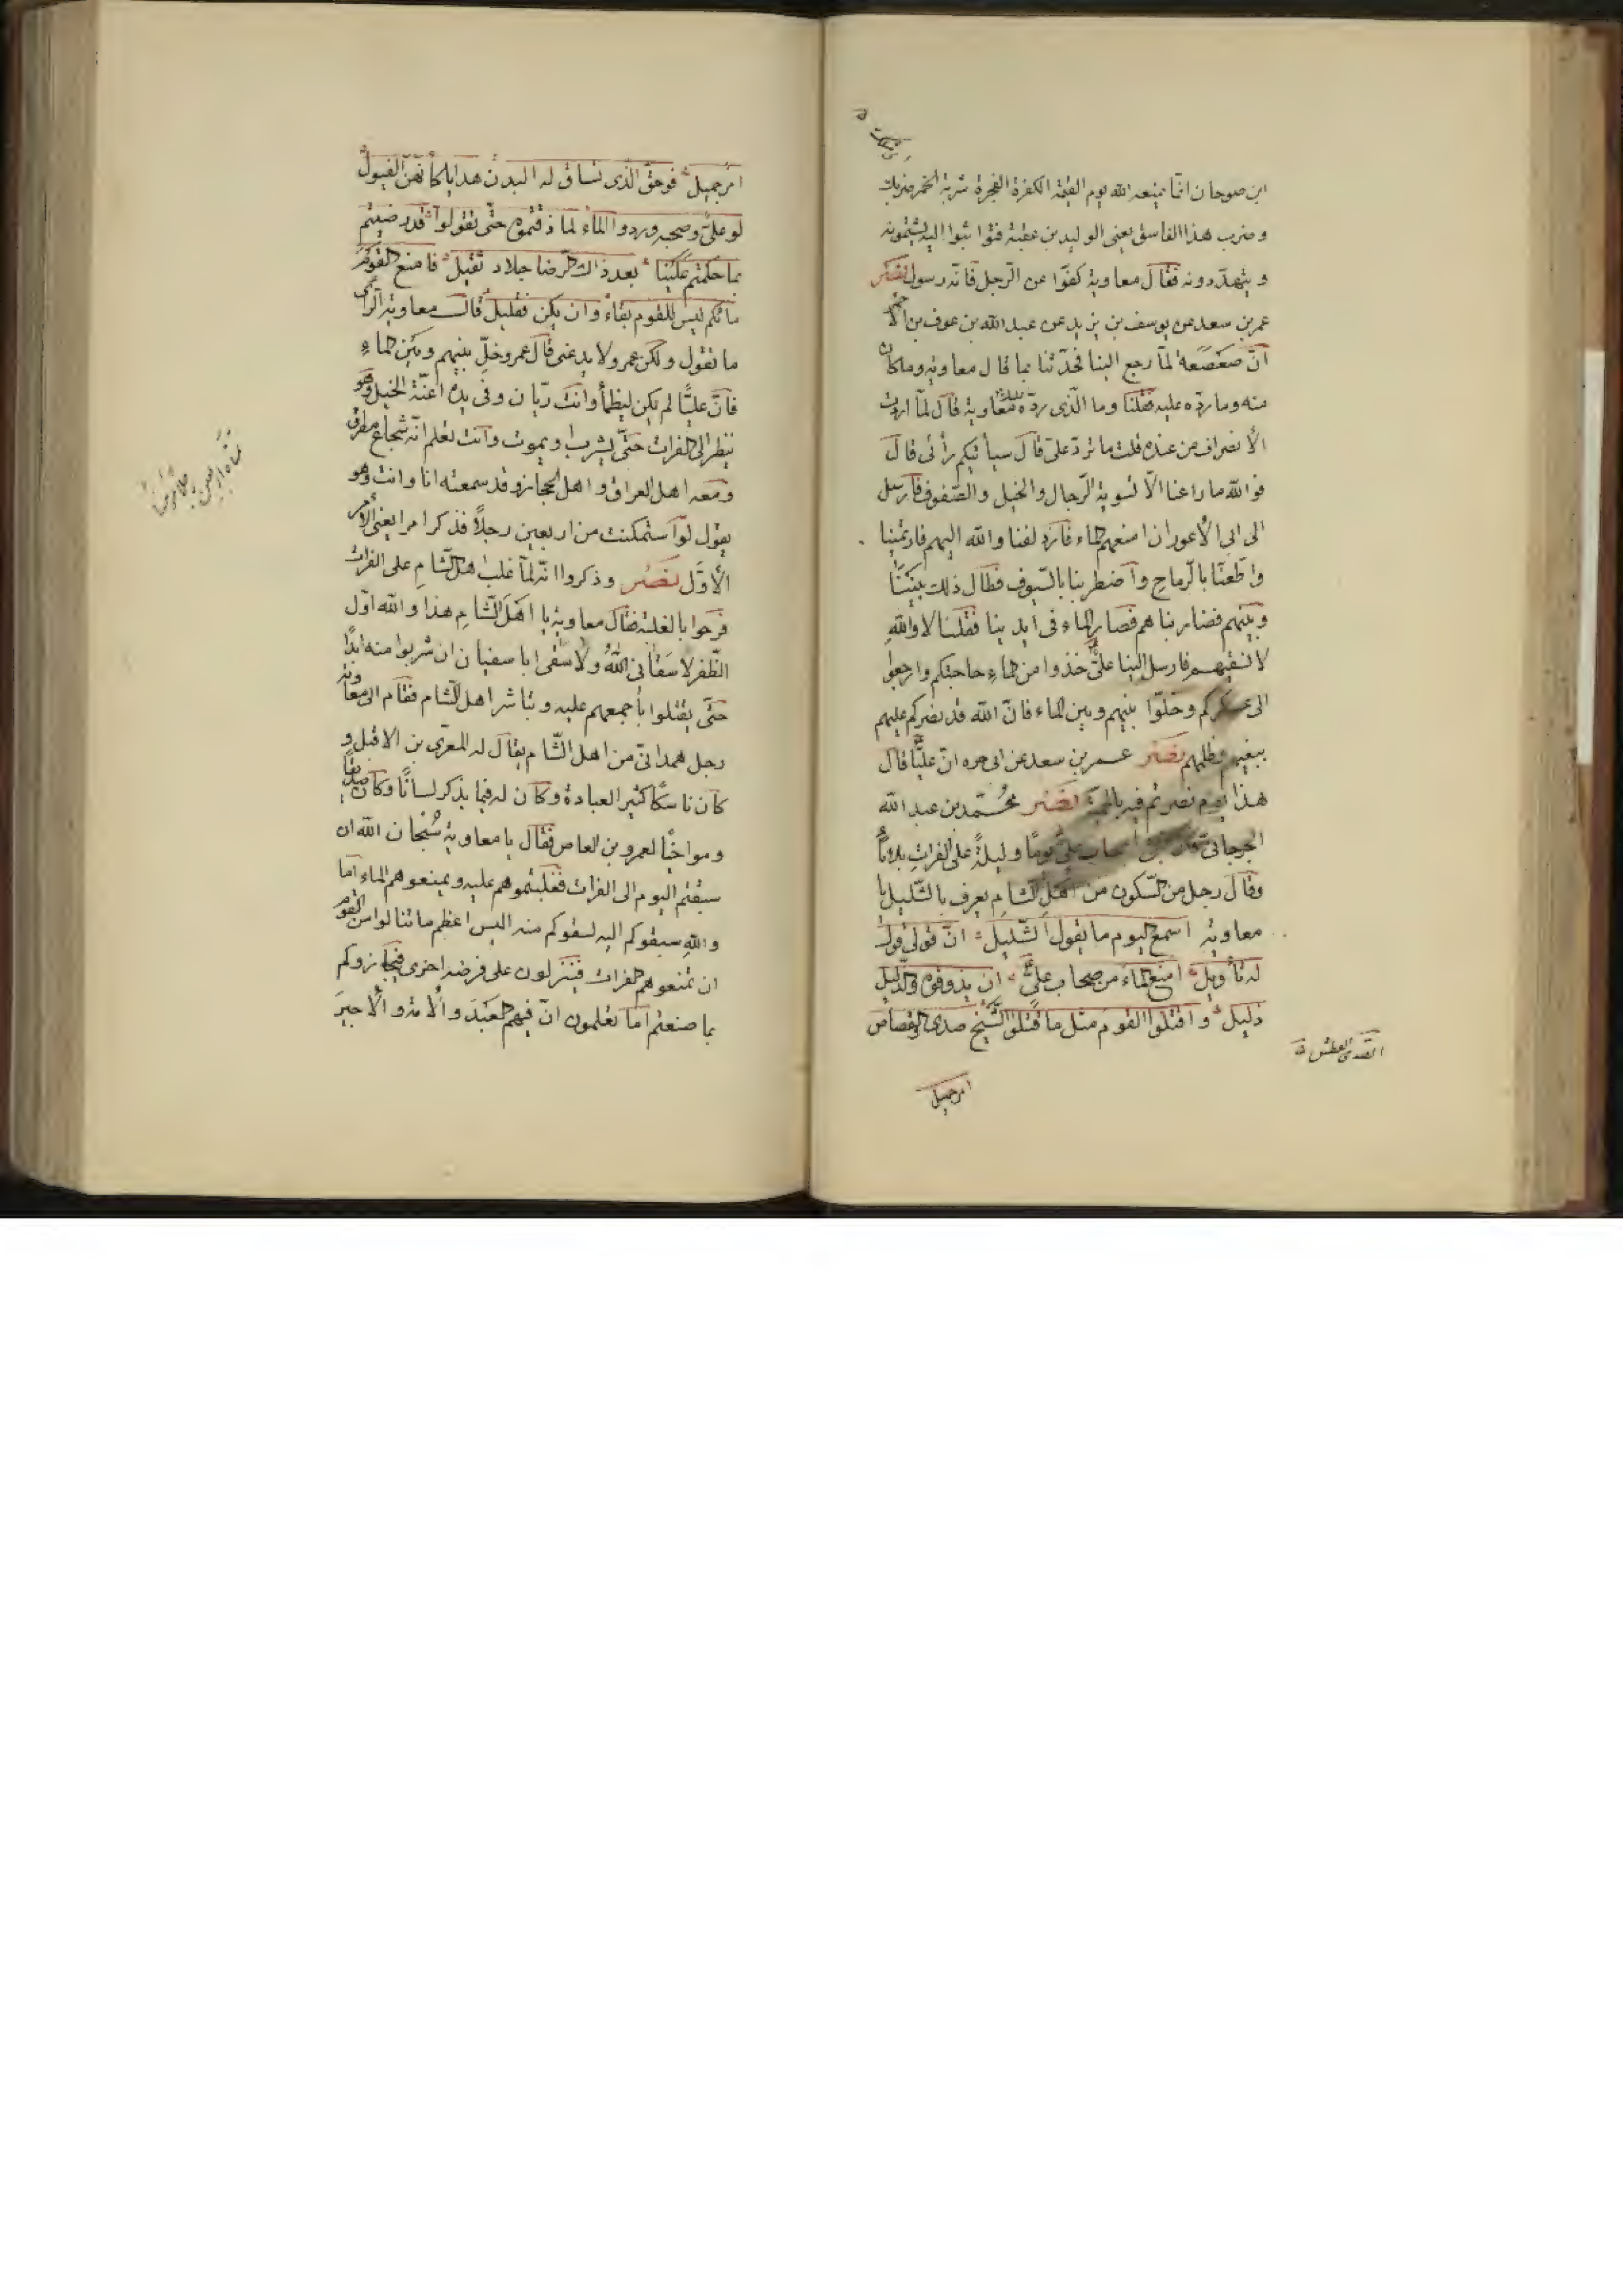 ابن صوحان انّما يمنعه الله يوم القيمة الكفرة الفجرة شربة الخمر ضربك
وضرب هذا الفاسق يعنى الوليد بن عقبة فتواثبوا اليه يشتمونه
ويتهدّدونه فقال معاوية كفّوا عن الرّجل فانّه رسول نصر
عمر بن سعد عن يوسف بن يزيد عن عبد الله بن عوف بن الأحمر
انّ صعصعه لمّا رجع الينا فحدّثنا بما قال معاويه وما كان
منه وما ردّه عليه فقلنا وما الّذى ردّه عليك معاوية قال لمّا اردت
الأنصراف من عنده قلت ما تردّ علىّ قال سيأتيكم رأئى قال
فوالله ما راعنا الّا تسوية الرّجال والخيل والصّفوف فارسل
الى ابى الأعور ان امنعهم الماء فازدلفنا والله اليهم فارتمينا
واطّعنّا بالرّماح واضطربنا بالسّيوف فطال ذلك بيننا
وبينهم فضاربناهم فصار الماء فى ايدينا فقلنا لا والله
لا نسقيهم فارسل الينا علىّ خذوا من الماء حاجتكم وارجعوا
الى عسكركم وخلّوا بينهم وبين الماء فانّ الله قد نصركم عليهم
ببغيهم وظلمهم نصر عمر بن سعد عن ابى حره انّ عليّا قال
هذا يوم نصرتم فيه بالحميّة نصر محمّد بن عبد الله
الجرجانى اصحاب علىّ يوما وليلة على الفرات بلا ماء
وقال رجل من السّكون من اهل الشّام يعرف بالشّليل يا
معاويه اسمع اليوم ما يقول الشّليل انّ قولى قول
له تأويل امنع الماء من صحاب علىّ ان يذوقوه والذّليل
ذليل واقتلوا القوم مثل ما قتلوا الشّيخ صدى والقصاص
الصّدى العطش
امر جميل
امر جميل فوحقّ الّذى تساق له البدن هدايا كأنّهنّ الفيول
لو علىّ وصحبه وردوا الماء لما ذقتموه حتّى تقولوا قد رضيتم
بما حكمتم علينا بعد ذاك الرّضا جلاد ثقيل فامنع القوم
مائكم ليس للقوم بقاء وان يكن فقليل قالت معاوية الرأى
ما تقول ولكن عمرو لا يدعنى قال عمرو خلّ بينهم وبين الماء
فانّ عليّا لم يكن ليظمأ وانت ريّان وفى يده اعنّة الخيل وهو
ينظر الى الفرات حتّى يشرب او يموت وانت تعلم انّه شجاع مطرق
ومعه اهل العراق واهل الحجاز وقد سمعته انا وانت وهو
يقول لو استمكنت من اربعين رجلا فذكر امرا يعنى الأمر
الأوّل نصر وذكروا انّه لمّا غلب اهل الشّام على الفرات
فرحوا بالغلبة فقال معاوية يا اهل الشّام هذا والله اوّل
الظّفر لا سقانى الله ولا سقى ابا سفيان ان شربوا منه ابدا
حتّى يقتلوا بأجمعهم عليه وتباشر اهل الشّام فقام الى معاوية
رجل همدانىّ من اهل الشّام يقال له المعرّى بن الاقبل و
كان ناسكا كثير العبادة وكان له فيما يذكر لسانا وكان صديقا
ومواخيا لعمرو بن العاص فقال يا معاوية سبحان الله ان
سبقتم اليوم الى الفرات فغلبتموهم عليه وتمنعوهم الماء اما
والله سبقوكم اليه لسقوكم منه اليس اعظم ما تنالوا من القوم
ان تمنعوهم الفرات فينزلون على فرضه اخرى فيجازوكم
بما صنعتم اما تعلمون انّ فيهم العبد والأمة والأجير